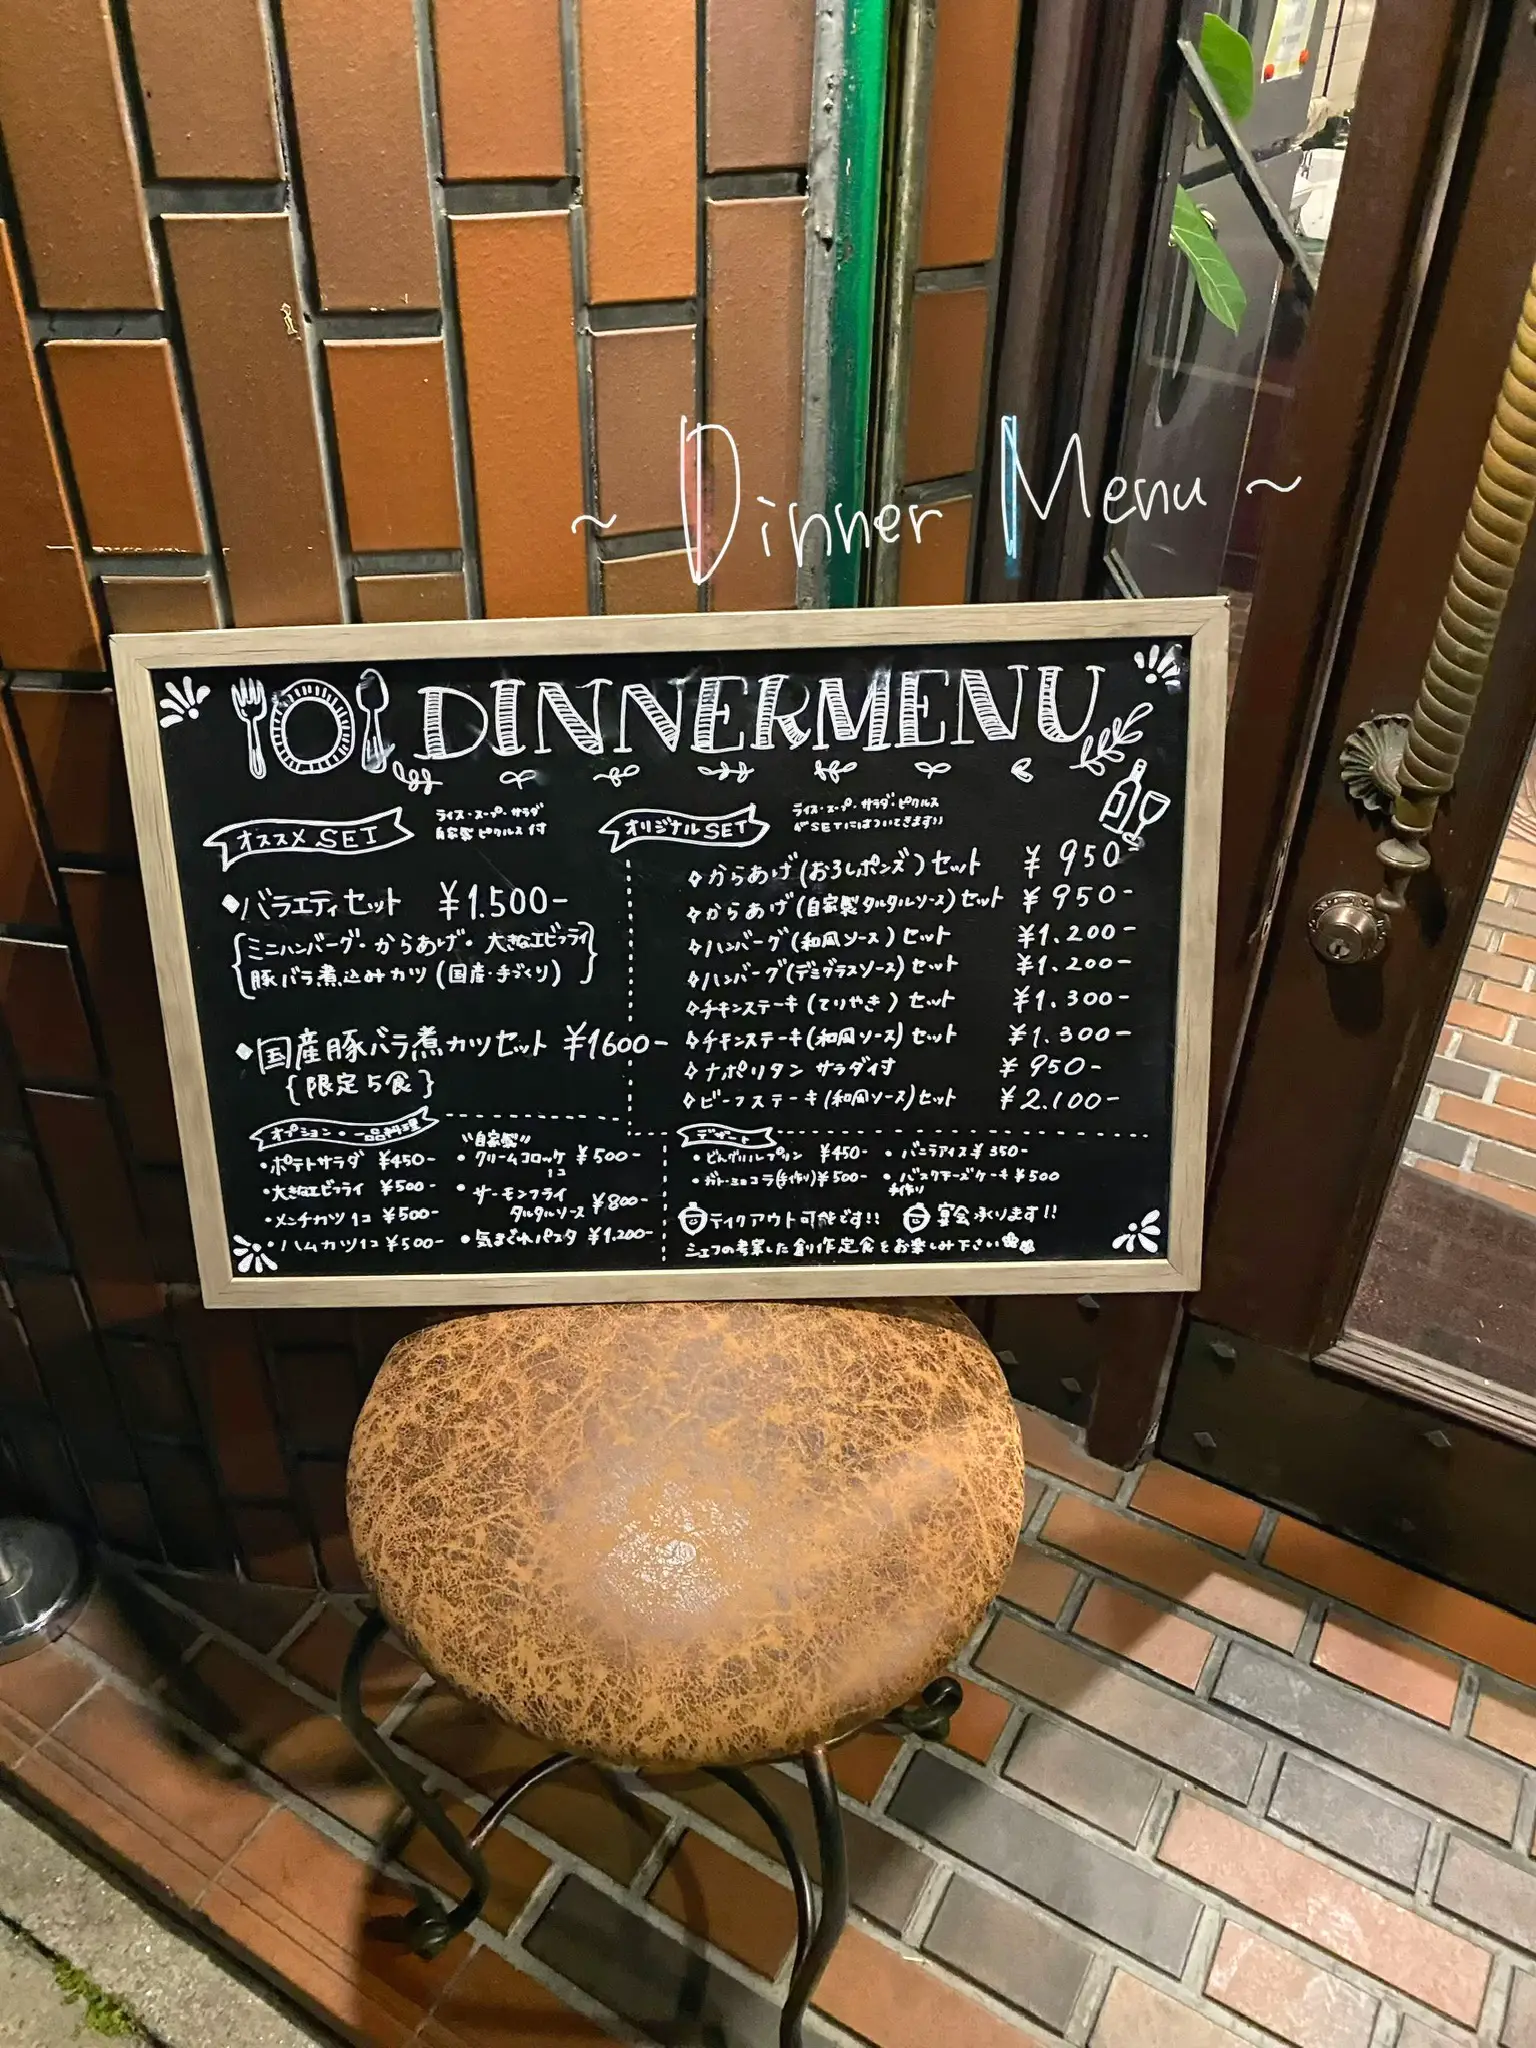 ~ Dinner Menu ~
DINNERMENU
オススメ SET
ライス・スープ・サラダ
自家製ピクルス付
◆バラエティセット ¥1.500-
{ミニハンバーグ・からあげ・大きなエビフライ
豚バラ煮込みカツ (国産・手づくり)}
◆国産豚バラ煮カツセット ¥1600-
{限定5食}
オリジナル SET
ライス・スープ・サラダ・ピクルス
がSETにはついてきます!!
◇からあげ(おろしポンズ)セット ¥950-
◇からあげ(自家製タルタルソース)セット ¥950-
◇ハンバーグ(和風ソース)セット ¥1.200-
◇ハンバーグ(デミグラスソース)セット ¥1.200-
◇チキンステーキ(てりやき)セット ¥1.300-
◇チキンステーキ(和風ソース)セット ¥1.300-
◇ナポリタン サラダ付 ¥950-
◇ビーフステーキ(和風ソース)セット ¥2.100-
オプション・一品料理
・ポテトサラダ ¥450-
・大きなエビフライ ¥500-
・メンチカツ1コ ¥500-
・ハムカツ1コ ¥500-
"自家製"
・クリームコロッケ ¥500-
1コ
・サーモンフライ
タルタルソース ¥800-
・気まぐれパスタ ¥1.200-
デザート
・どんグリルプリン ¥450-
・ガトーショコラ(手作り)¥500-
・バニラアイス ¥350-
・バスクチーズケーキ ¥500
手作り
テイクアウト可能です!! 宴会承ります!!
シェフの考案した創作定食をお楽しみ下さい